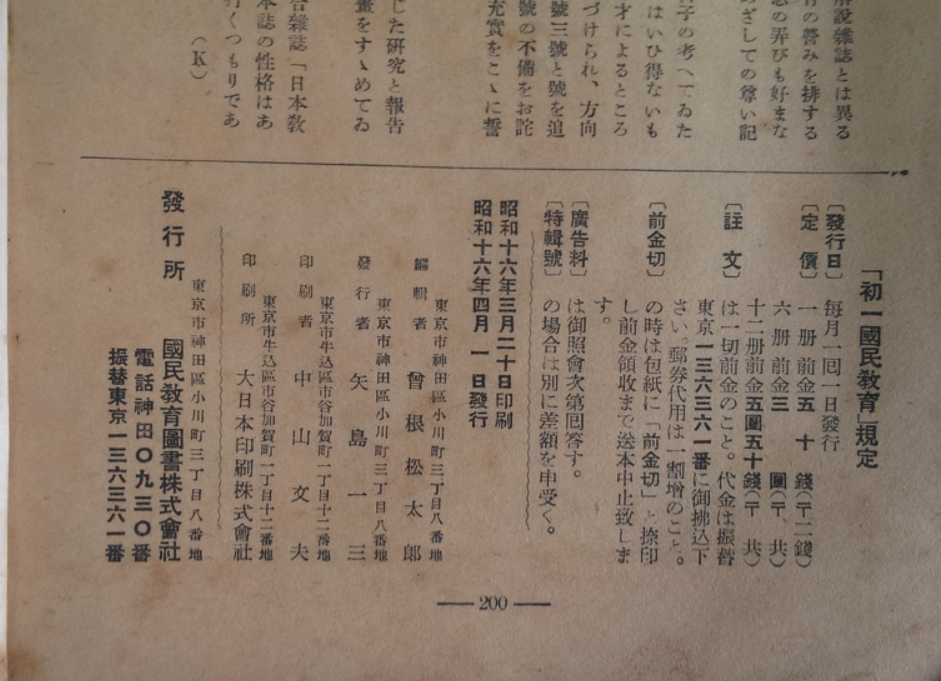 解說雜誌とは異る
の營みを排する
の弄びも好まな
ざしての尊い記
子の考へてゐた
はいひ得ないも
才によるところ
づけられ、方向
號三號と號を追
號の不備をお詫
充實をこゝに誓
じた研究と報告
畫をすゝめてゐ
合雜誌「日本敎
本誌の性格はあ
行くつもりであ
（K）
「初一國民敎育」規定
〔發行日〕 每月一囘一日發行
〔定價〕 一册 前金五十錢（〒二錢）
六册 前金三圓（〒共）
十二册前金五圓五十錢（〒共）
〔註文〕 は一切前金のこと。代金は振替
東京一三六三六一番に御拂込下
さい。郵券代用は一割增のこと。
〔前金切〕 の時は包紙に「前金切」と捺印
し前金領收まで送本中止致しま
す。
〔廣告料〕 は御照會次第囘答す。
〔特輯號〕 の場合は別に差額を申受く。
昭和十六年三月二十日印刷
昭和十六年四月一日發行
東京市神田區小川町三丁目八番地
編輯者 曾根松太郎
東京市神田區小川町三丁目八番地
發行者 矢島一三
東京市牛込區市谷加賀町一丁目十二番地
印刷者 中山文夫
東京市牛込區市谷加賀町一丁目十二番地
印刷所 大日本印刷株式會社
東京市神田區小川町三丁目八番地
發行所 國民敎育圖書株式會社
電話神田〇九三〇番
振替東京一三六三六一番
200